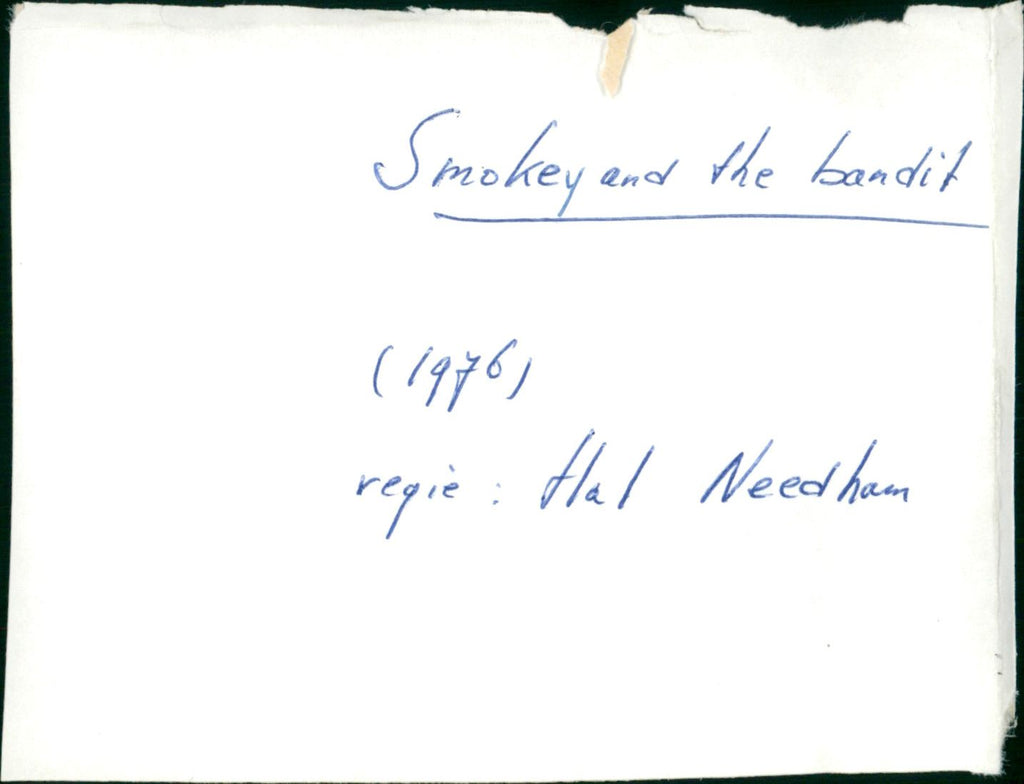 Smokey and the bandit
(1976)
regie : Hal Needham